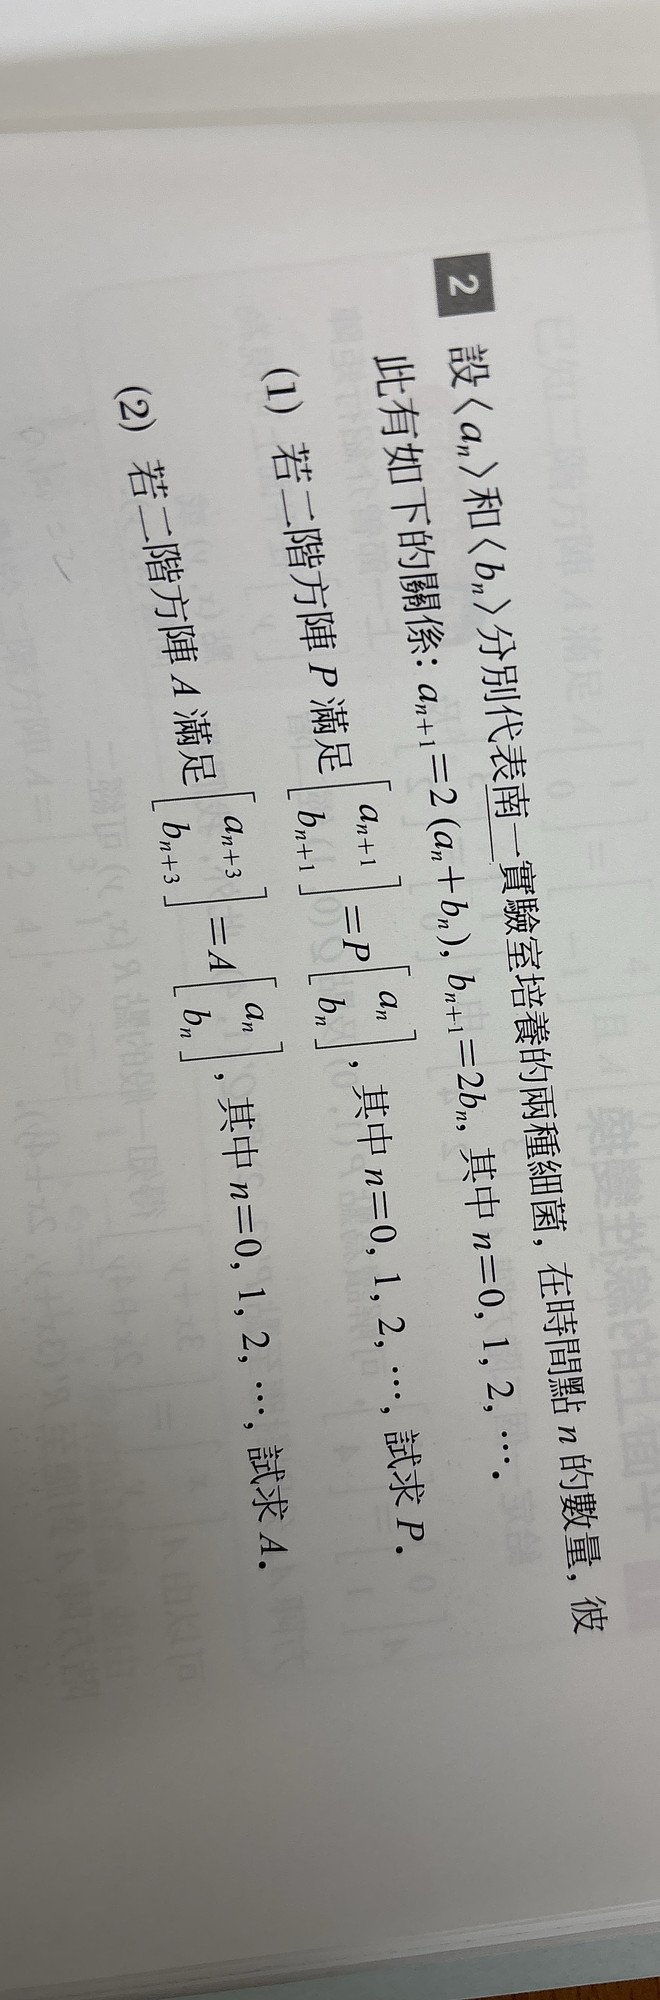 2 設〈aₙ〉和〈bₙ〉分別代表南一實驗室培養的兩種細菌，在時間點 n 的數量，彼
此有如下的關係：aₙ₊₁=2(aₙ+bₙ)，bₙ₊₁=2bₙ，其中 n=0, 1, 2, ⋯．
(1) 若二階方陣 P 滿足 [aₙ₊₁ bₙ₊₁] =P [aₙ bₙ]，其中 n=0, 1, 2, ⋯，試求 P．
(2) 若二階方陣 A 滿足 [aₙ₊₃ bₙ₊₃] =A [aₙ bₙ]，其中 n=0, 1, 2, ⋯，試求 A．